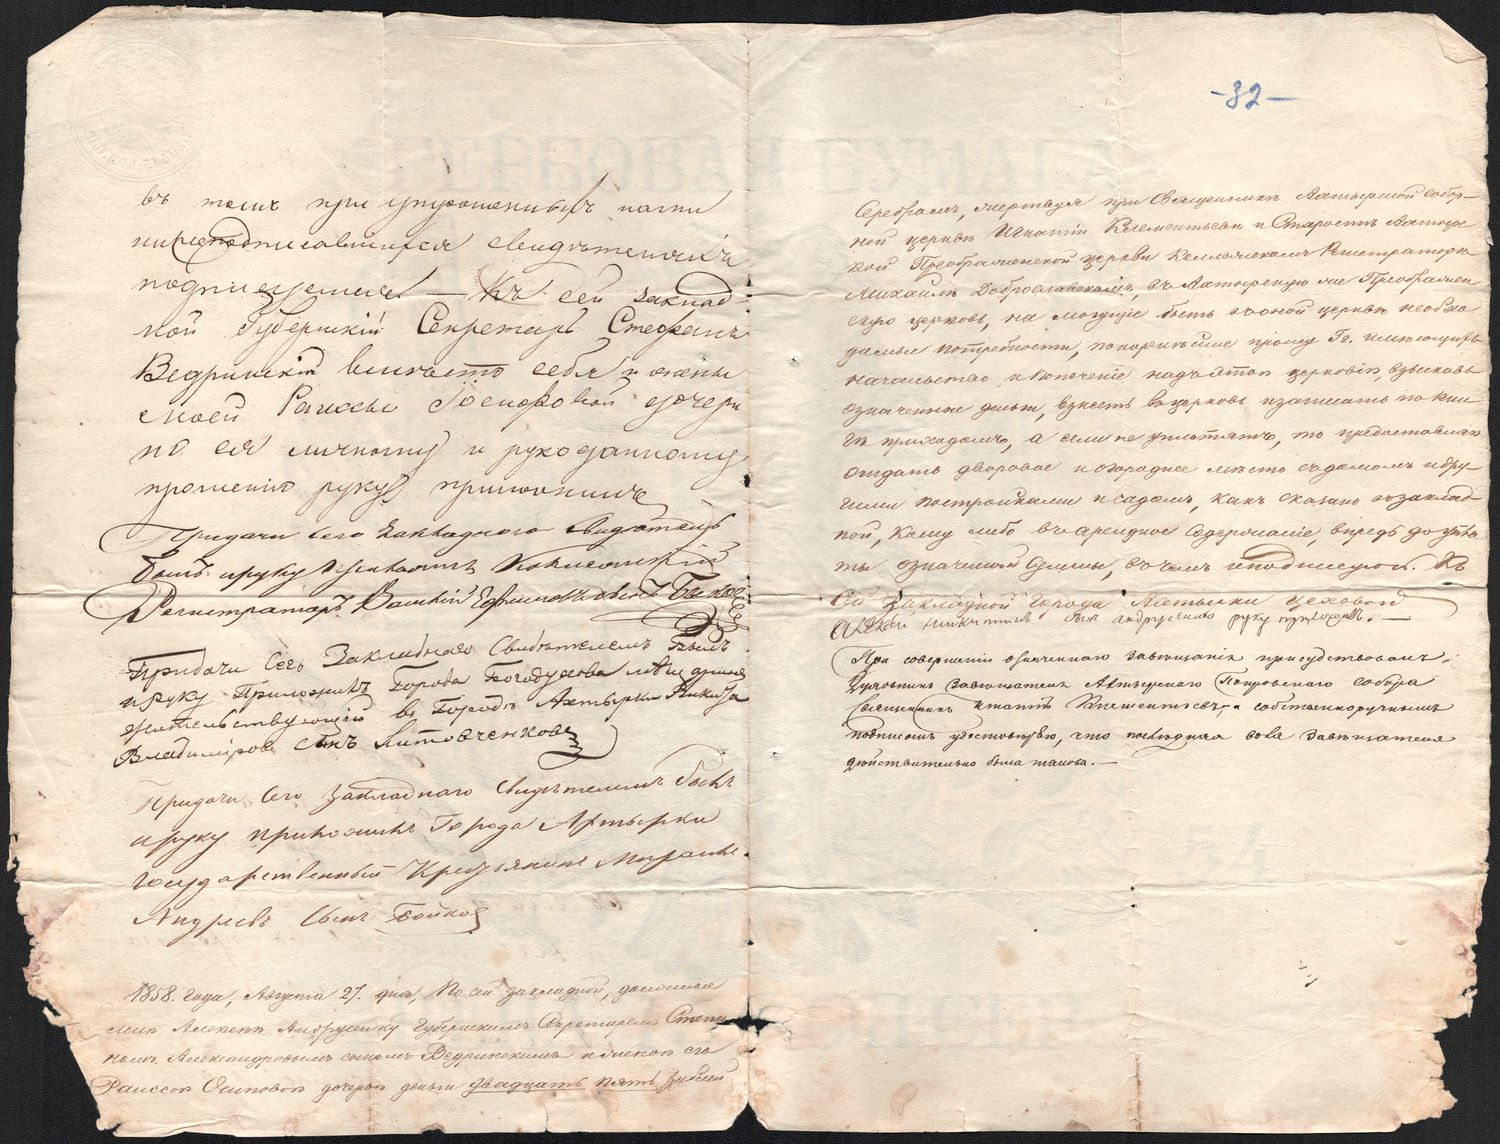 въ томъ при упрошенныхъ нами
нижеподписавшихся свидѣтеляхъ
подписуемся. — Къ сей заклад-
ной Губернскій Секретарь Стефанъ
Ведринскій вмѣсто себя и жены
своей Раиссы Іосифовой дочери
по ея личному и рукоданному
прошенію руку приложилъ
При дачи сего Закладного Свидѣтель
былъ и руку приложилъ Коллежскій
Регистраторъ Василій Ефимовъ сынъ
При дачи Сего Закладнаго Свидѣтелемъ Былъ
и руку Приложилъ Города Богодухова мѣщанинъ
жительствующій въ Городѣ Ахтырки Никита
Владиміров Сынъ Литовченковъ
При дачи Сего Закладнаго Свидѣтелемъ былъ
и руку приложилъ Города Ахтырки
государственный Крестьянинъ Михаилъ
Андреевъ Сынъ Бойко
1858. года, Августа 27. дня, По сей закладной, должные
мнѣ Алексѣю Андрусенку Губернскимъ Секретаремъ Степа-
номъ Александровымъ сыномъ Ведринскимъ и женою его
Раиссою Осиповою дочерью деньги двадцать пять рублей
-32-
Серебромъ, жертвуя при Священникѣ Ахтырской собор-
ной церкви Игнатіи Клементьевѣ и Старостѣ Ахтыр-
кой Преображенской церкви Коллежскомъ Регистраторѣ
Михайлѣ Доброславскомъ, въ Ахтырскую же Преображен-
скую церковь, на могущіе быть въ оной церкви необхо-
димыя потребности, покорнѣйше прошу Гг. имѣющихъ
начальство и попеченіе надъ этою церковію, взыскавъ
означенные деньги, взнесть въ церковь и записать по кни-
гѣ приходомъ, а если не уплотятъ, то предоставляю
отдать дворовое и огороднее мѣсто съ домомъ и дру-
гими постройками и садомъ, какъ сказано въ заклад-
ной, кому либо въ арендное содержаніе, впредь до упла-
ты означенной суммы, въ чемъ и подписуюсь. Къ
сей закладной города Ахтырки цеховой
Алексей Никитинъ сынъ Андрусенко руку приложилъ. —
При совершеніи означеннаго завѣщанія присутствовалъ
духовникъ завѣщателя Ахтырскаго Покровскаго собора
священникъ Игнатій Клементьевъ, и собственноручнымъ
подписомъ удостовѣряю, что послѣдняя воля завѣщателя
дѣйствительно была такова. —